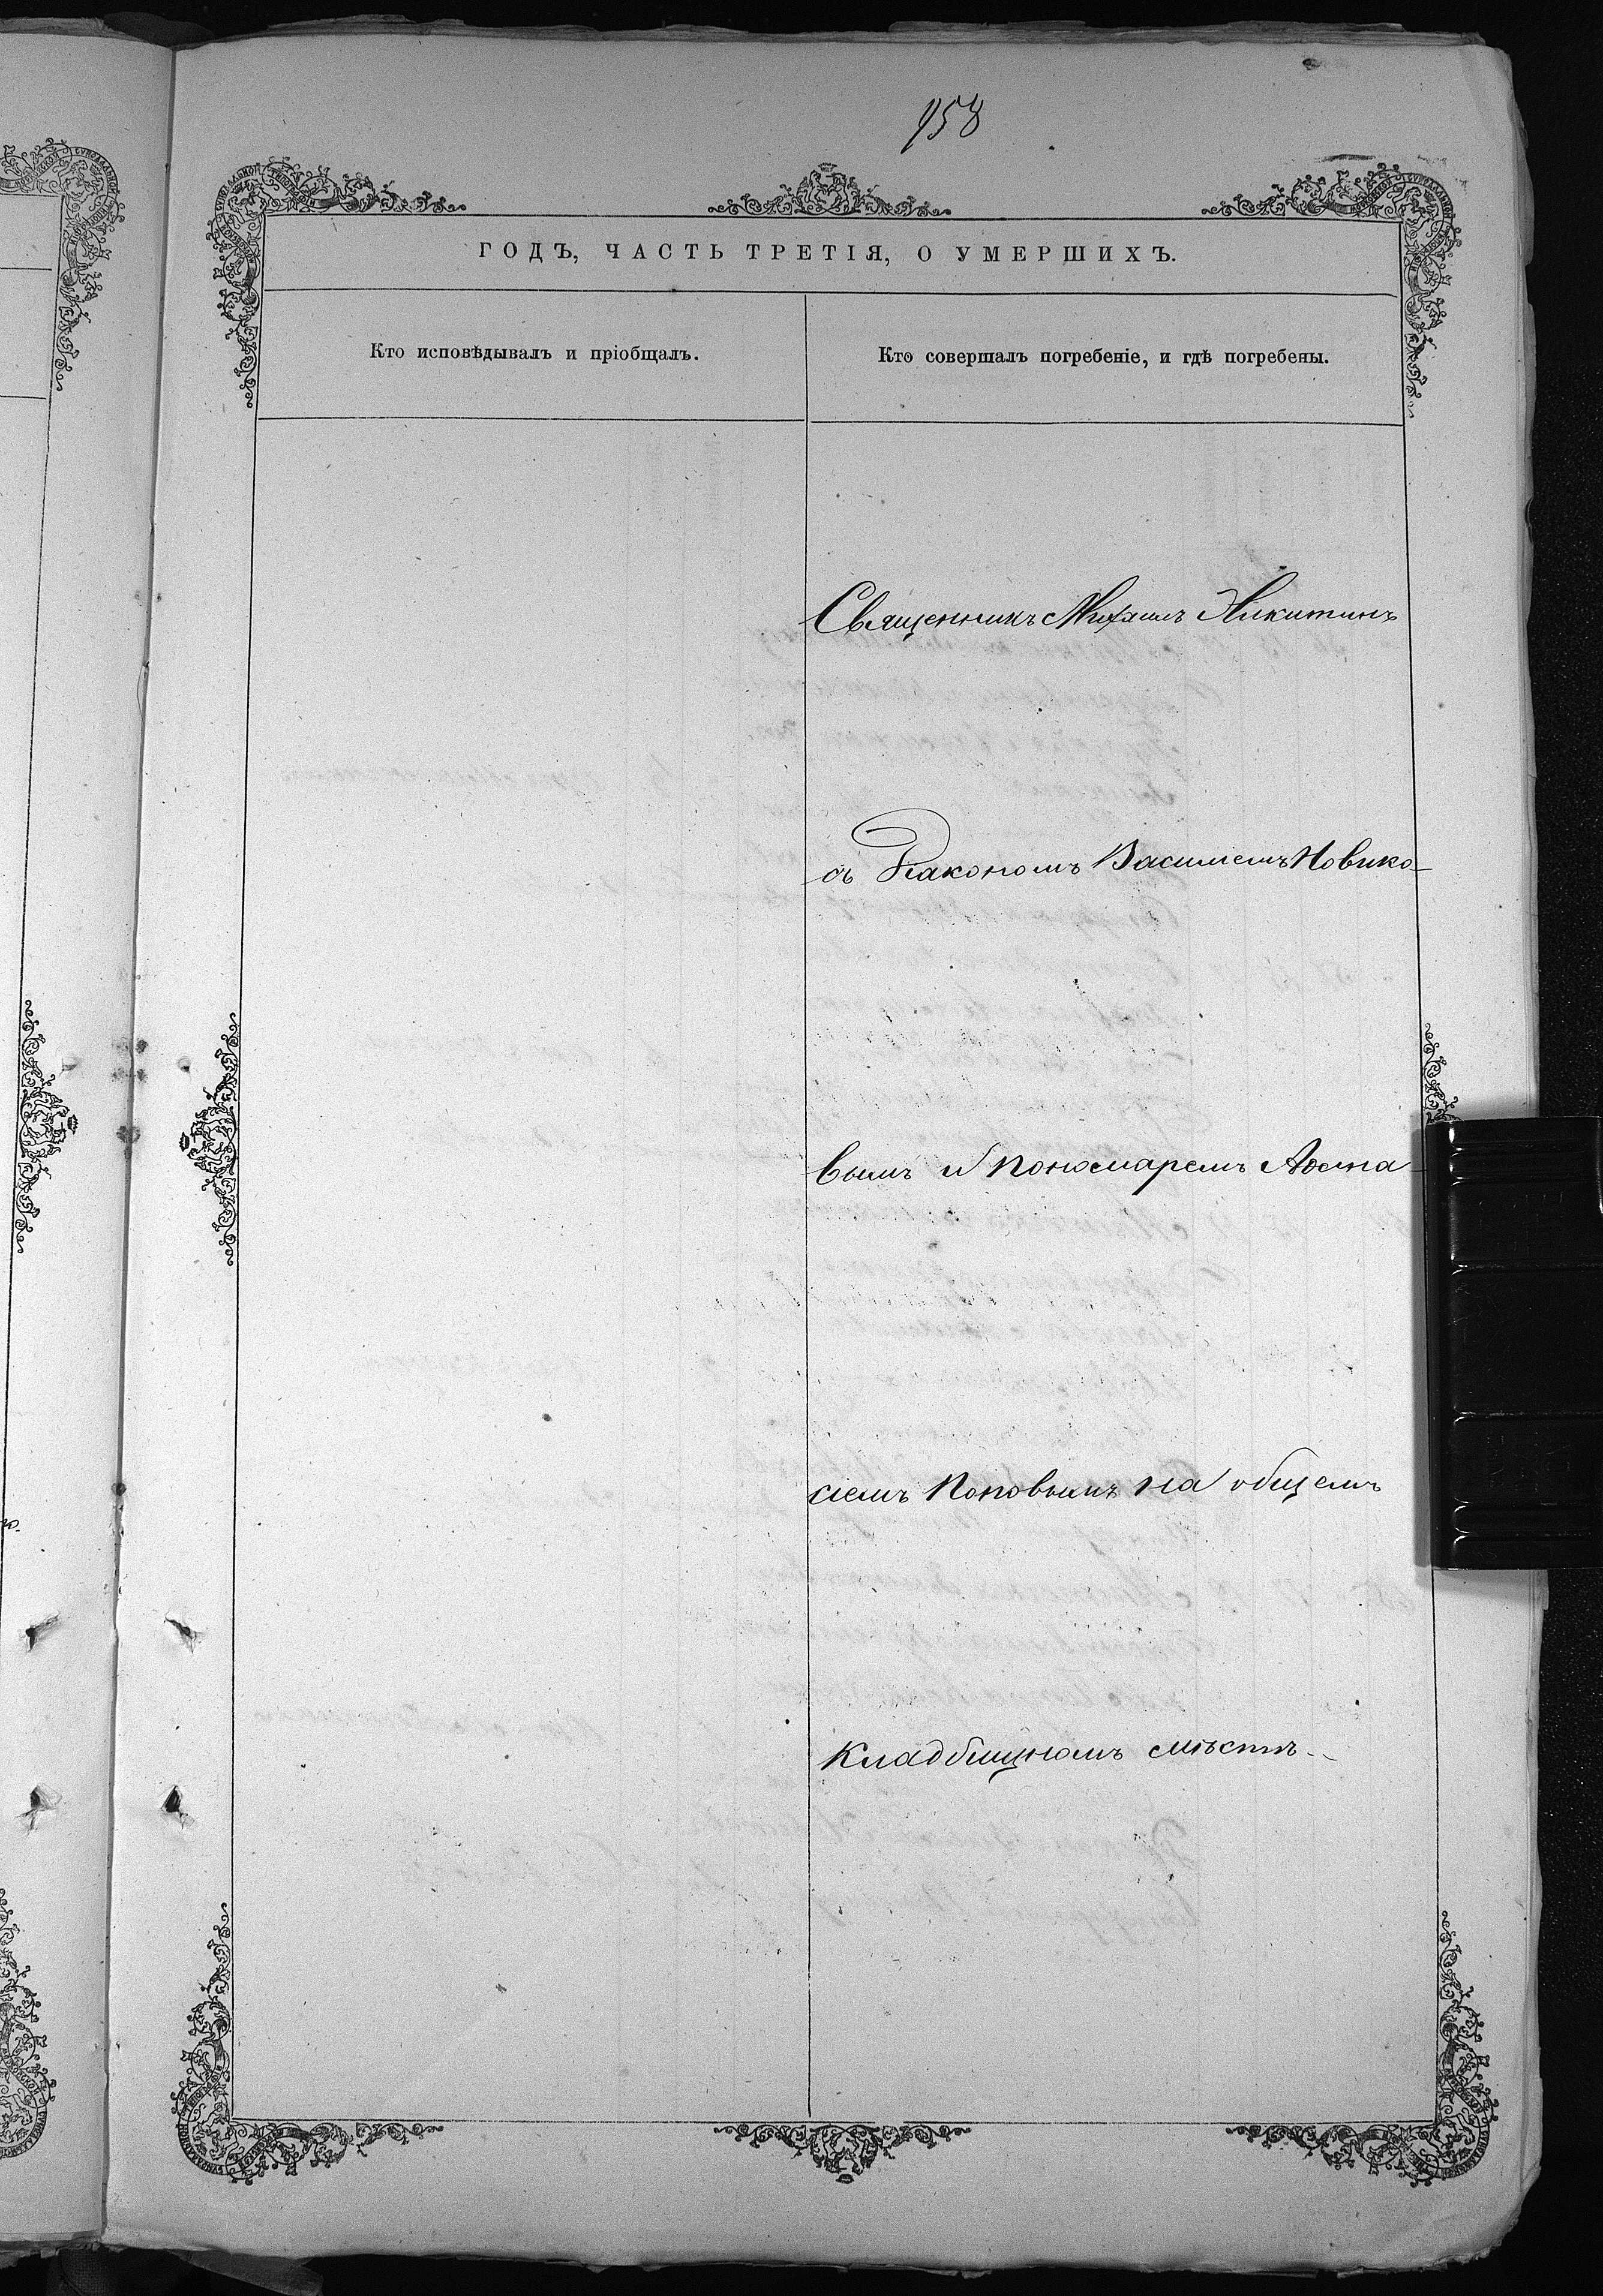 958
ГОДЪ, ЧАСТЬ ТРЕТІЯ, О УМЕРШИХЪ.
Кто исповѣдывалъ и пріобщалъ.
Кто совершалъ погребеніе, и гдѣ погребены.
Священникъ Михаилъ Никитинъ
съ Діакономъ Василіемъ Новико-
вымъ и Пономаремъ Аѳана-
сіемъ Поповымъ на общемъ
кладбищномъ мѣстѣ.